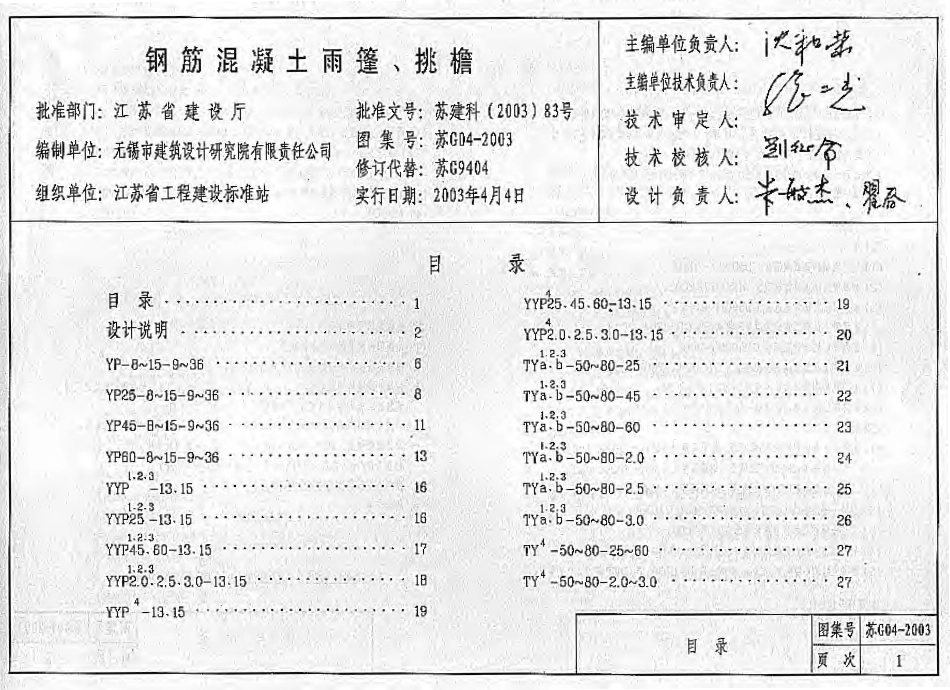 钢筋混凝土雨篷、挑檐
批准部门：江苏省建设厅
编制单位：无锡市建筑设计研究院有限责任公司
组织单位：江苏省工程建设标准站
批准文号：苏建科（2003）83号
图集号：苏G04-2003
修订代替：苏G9404
实行日期：2003年4月4日
主编单位负责人：
主编单位技术负责人：
技术审定人：
技术校核人：
设计负责人：
目 录
目 录 1
设计说明 2
YP-8~15-9~36 6
YP25-8~15-9~36 8
YP45-8~15-9~36 11
YP60-8~15-9~36 13
YYP1.2.3-13.15 16
YYP251.2.3-13.15 16
YYP45.601.2.3-13.15 17
YYP2.0.2.5.3.01.2.3-13.15 18
YYP4-13.15 19
YYP425.45.60-13.15 19
YYP42.0.2.5.3.0-13.15 20
TYa.b1.2.3-50~80-25 21
TYa.b1.2.3-50~80-45 22
TYa.b1.2.3-50~80-60 23
TYa.b1.2.3-50~80-2.0 24
TYa.b1.2.3-50~80-2.5 25
TYa.b1.2.3-50~80-3.0 26
TY4-50~80-25~60 27
TY4-50~80-2.0~3.0 27
目 录
图集号 苏G04-2003
页 次 1